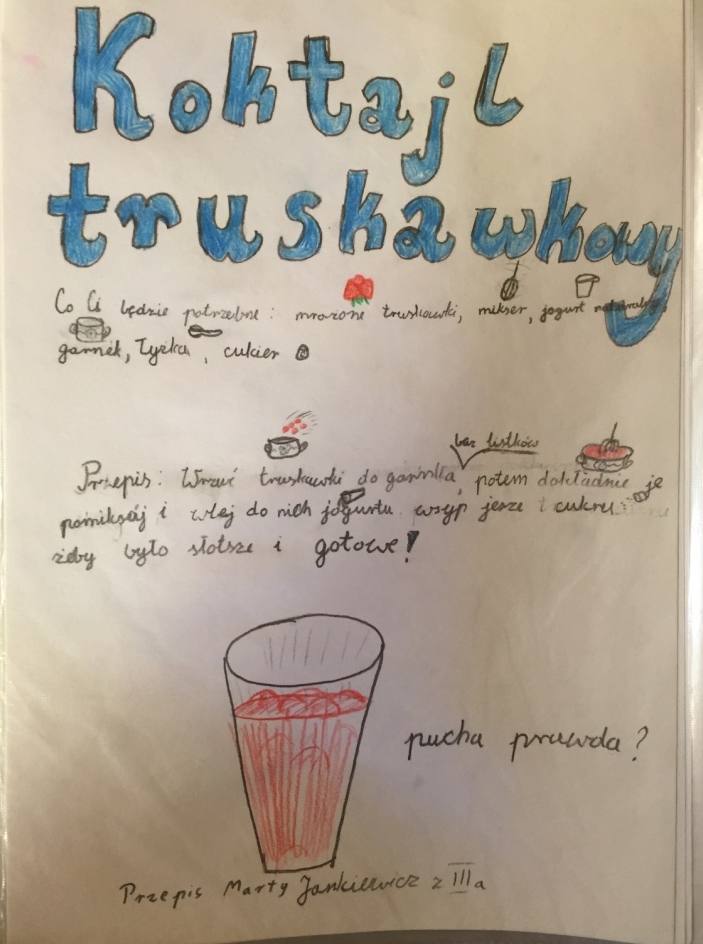 Koktajl
truskawkowy
Co Ci będzie potrzebne: mrożone truskawki, mikser, jogurt naturalny,
garnek, łyżka, cukier
bez listków
Przepis: Wrzuć truskawki do garnka, potem dokładnie je
pomiksój i wlej do nich jogurtu. wsyp jesze cukru
żeby było słotsze i gotowe!
pucha prawda?
Przepis Marty Jankiewicz z III a